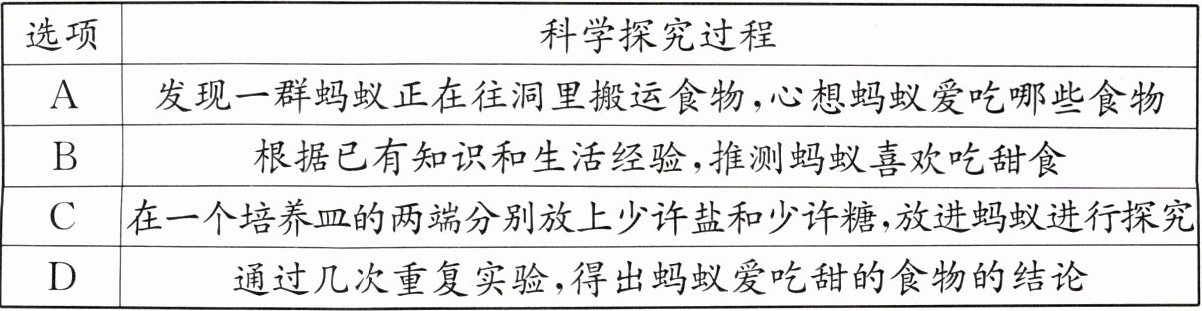 选项 科学探究过程
A 发现一群蚂蚁正在往洞里搬运食物,心想蚂蚁爱吃哪些食物
B 根据已有知识和生活经验,推测蚂蚁喜欢吃甜食
C 在一个培养皿的两端分别放上少许盐和少许糖,放进蚂蚁进行探究
D 通过几次重复实验,得出蚂蚁爱吃甜的食物的结论